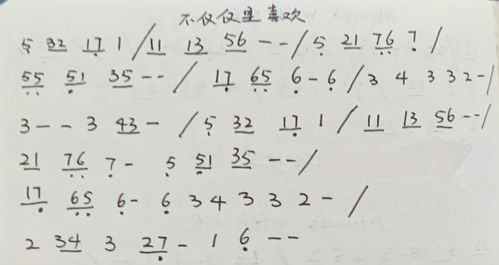 不仅仅是喜欢
5 32 17 1 / 11 13 56 -- / 5 21 76 7 /
55 51 35 -- / 17 65 6 - 6 / 3 4 3 3 2 - /
3 -- 3 43 - / 5 32 17 1 / 11 13 56 -- /
21 76 7 - 5 51 35 -- /
17 65 6 - 6 3 4 3 3 2 - /
2 34 3 27 - 1 6 --